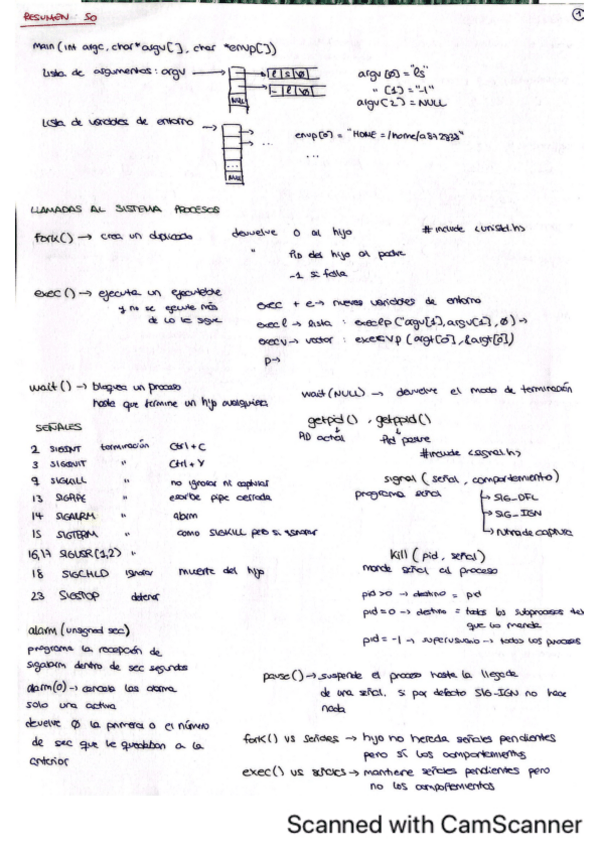 RESUMEN: SO
1
main (int argc, char *argv[], char *envp[])
Lista de argumentos: argv → l s \0
- l \0
NULL
argv[0] = "ls"
" [1] = "-l"
argv[2] = NULL
Lista de variables de entorno →
...
...
NULL
envp[0] = "HOME = /home/a842838"
...
LLAMADAS AL SISTEMA PROCESOS
fork() → crea un duplicado
devuelve 0 al hijo
" PID del hijo al padre
-1 si falla
# include <unistd.h>
exec() → ejecuta un ejecutable
y no se ejecute más
de lo que sigue
exec + e → nuevas variables de entorno
execl → lista : execlp (argv[1], argv[2], 0) →
execv → vector : execvp (argt[0], &argt[0])
p→
wait() → bloquea un proceso
hasta que termine un hijo cualquiera
wait (NULL) → devuelve el modo de terminación
getpid() , getppid()
PID actual
PID padre
SEÑALES
2 SIGINT terminación Ctrl + C
3 SIGQUIT " Ctrl + Y
9 SIGKILL " no ignorar ni capturar
13 SIGPIPE " escribe pipe cerrada
14 SIGALRM " alarm
15 SIGTERM " como SIGKILL pero si ignorar
16,17 SIGUSR (1,2) "
18 SIGCHLD ignorar muerte del hijo
23 SIGSTOP detener
#include <signal.h>
signal ( señal , comportamiento)
programa señal
→ SIG_DFL
→ SIG_IGN
→ rutina de captura
kill ( pid , señal )
mande señal al proceso
pid >0 → destino = pid
pid = 0 → destino = todos los subprocesos del
que lo manda
pid = -1 → superusuario → todos los procesos
alarm (unsigned sec)
programa la recepción de
sigalarm dentro de sec segundos
alarm(0) → cancela las alarma
solo una activa
devuelve 0 la primera o el número
de sec que le quedaban a la
anterior
pause() → suspende el proceso hasta la llegada
de una señal. si por defecto SIG-IGN no hace
nada
fork() vs señales → hijo no hereda señales pendientes
pero sí los comportamientos
exec() vs señales → mantiene señales pendientes pero
no los comportamientos
Scanned with CamScanner